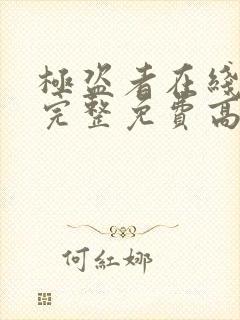 極盜者在綫
完整免費高
何紅娜